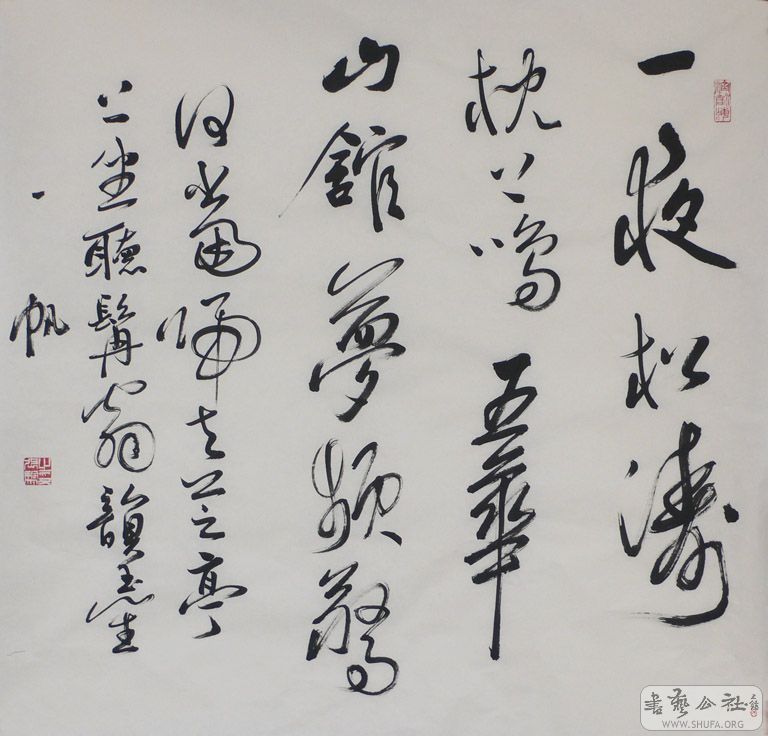 一夜松濤
枕上鳴五華
山館夢頻驚
何當歸去芝亭
上坐聽髯翁韻玉笙
一帆
書藝公社
WWW.SHUFA.ORG